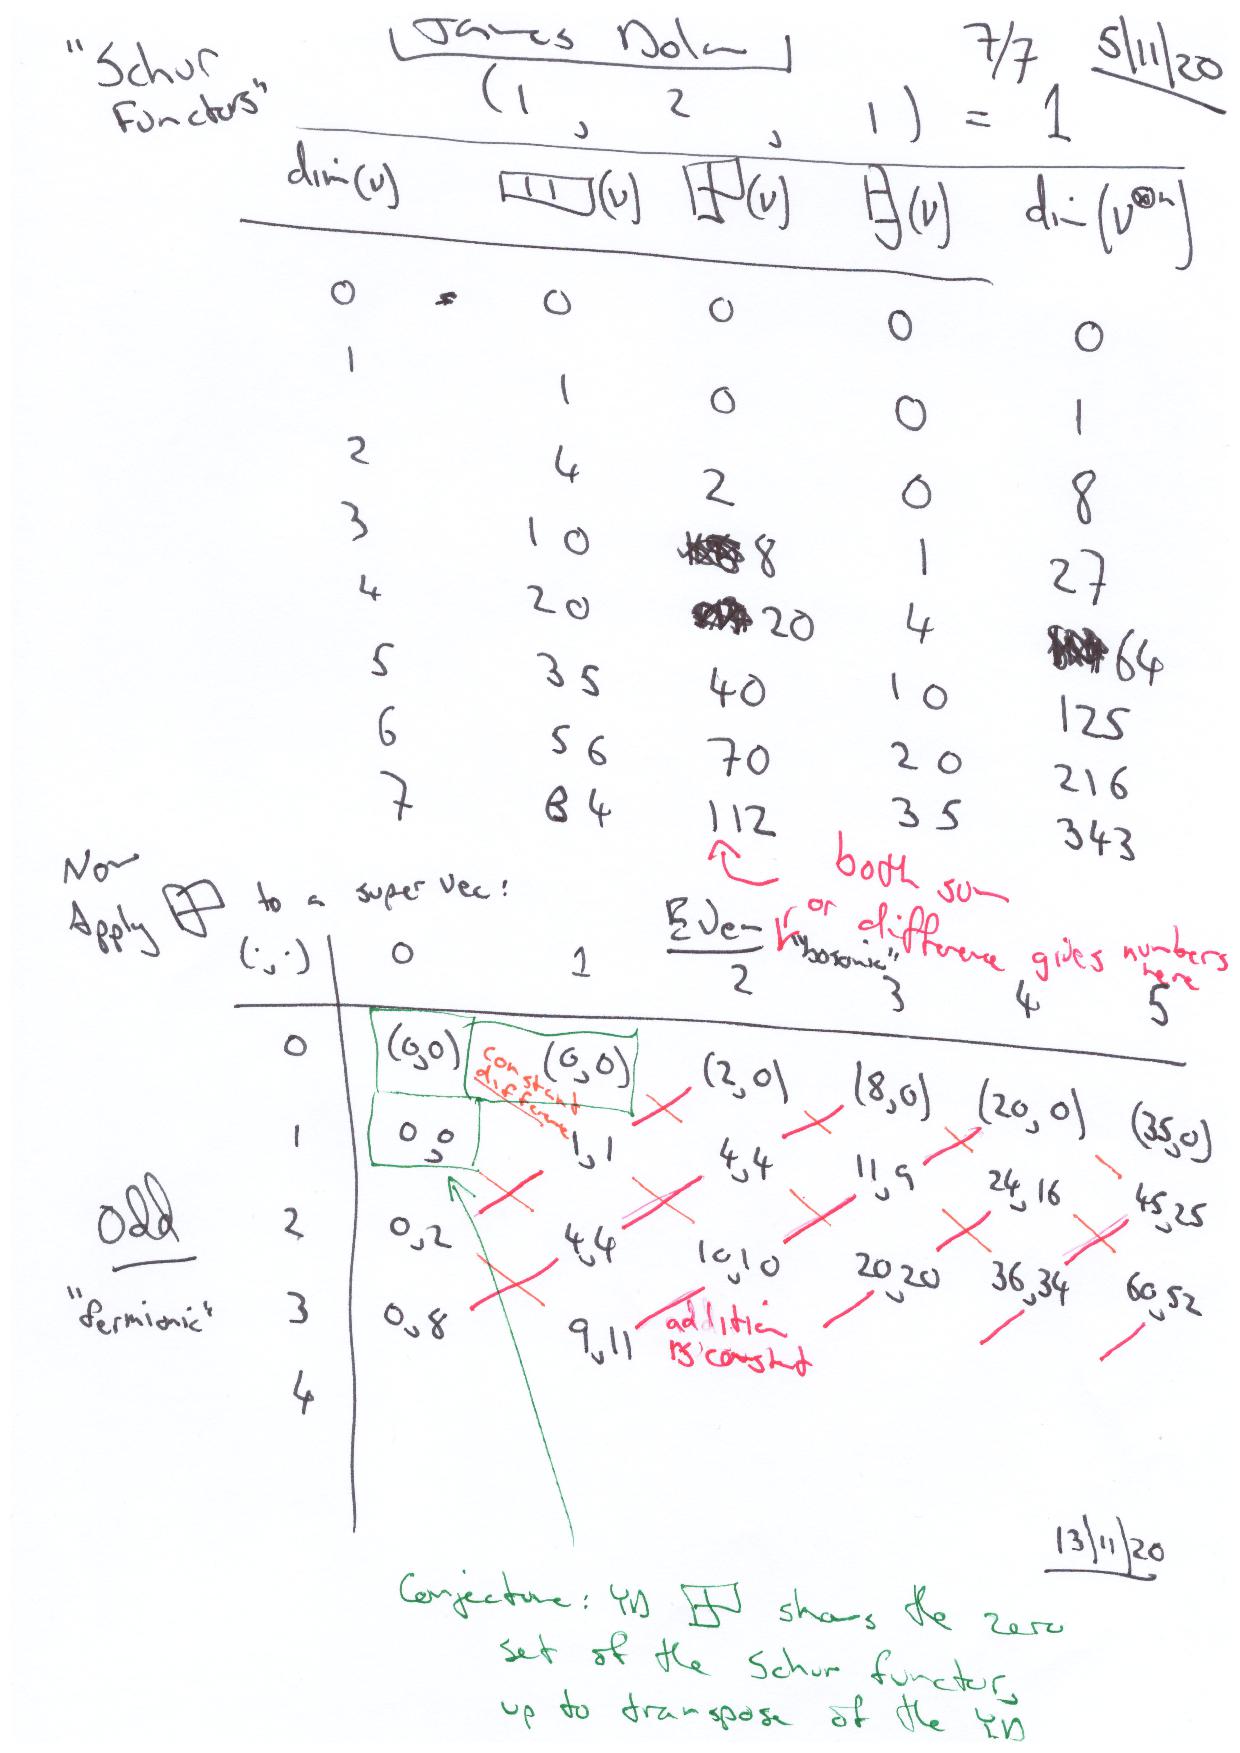 "Schur Functors"
James Dolan
7/7
5/11/20
(1, 2, 1) = 1
dim(v) (v) (v) (v) dim(v⊗n)
0 0 0 0 0
1 1 0 0 1
2 4 2 0 8
3 10 8 1 27
4 20 20 4 64
5 35 40 10 125
6 56 70 20 216
7 84 112 35 343
both sum
or difference gives numbers
here
Now
Apply to a super vec:
Even
"bosonic"
(·,·) 0 1 2 3 4 5
0 (0,0) (0,0) (2,0) (8,0) (20,0) (35,0)
constant
difference
1 0,0 1,1 4,4 11,9 24,16 45,25
Odd
"fermionic"
2 0,2 4,4 10,10 20,20 36,34 60,52
3 0,8 9,11
addition
is constant
4
13/11/20
Conjecture: YD shows the zero
set of the Schur functor,
up to transpose of the YD